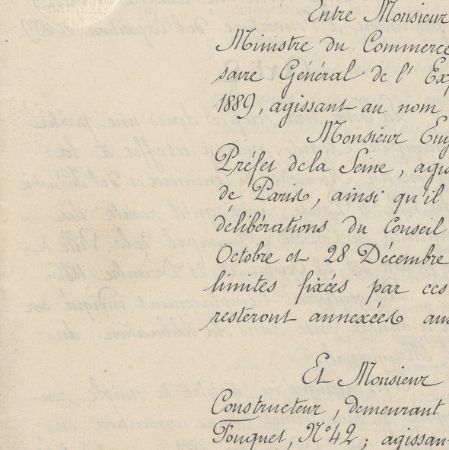 Entre Monsieur
Ministre du Commerce
saire Général de l'Ex
1889, agissant au nom
Monsieur Eug
Préfet de la Seine, agis
de Paris, ainsi qu'il
délibérations du Conseil
Octobre et 28 Décembre
limites fixées par ces
resteront annexées au
Et Monsieur
Constructeur, demeurant
Fouquet, N° 42; agissan